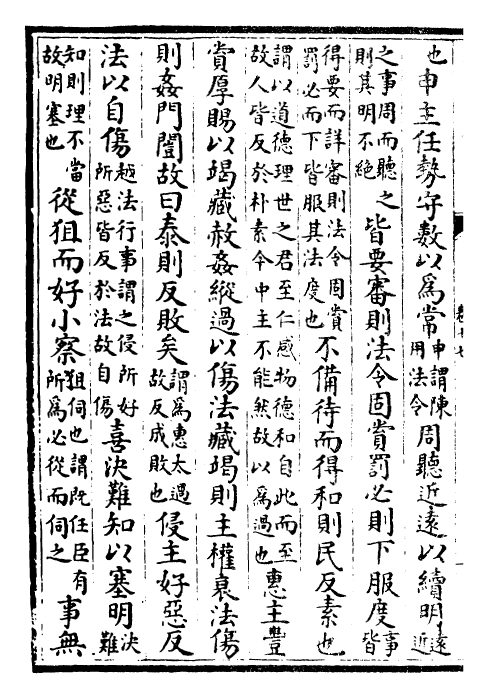 也申主任勢守數以爲常申謂陳用法令周聽近遠以續明遠近
之事周而聽之則其明不絶皆要審則法令固賞罰必則下服度事皆
得要而詳審則法令固賞罰必而下皆服其法度也不備待而得和則民反素也
謂以道德理世之君至仁感物德和自此而至故人皆反於朴素今中主不能然故以爲過也惠主豐
賞厚賜以竭藏赦姦縱過以傷法藏竭則主權衰法傷
則姦門闓故曰泰則反敗矣謂爲惠太過故反成敗也侵主好惡反
法以自傷越法行事謂之侵所好所惡皆反於法故自傷喜決難知以塞明決難
知則理不當故明塞也從狙而好小察狙伺也謂既任臣有所爲必從而伺之事無
卷十七